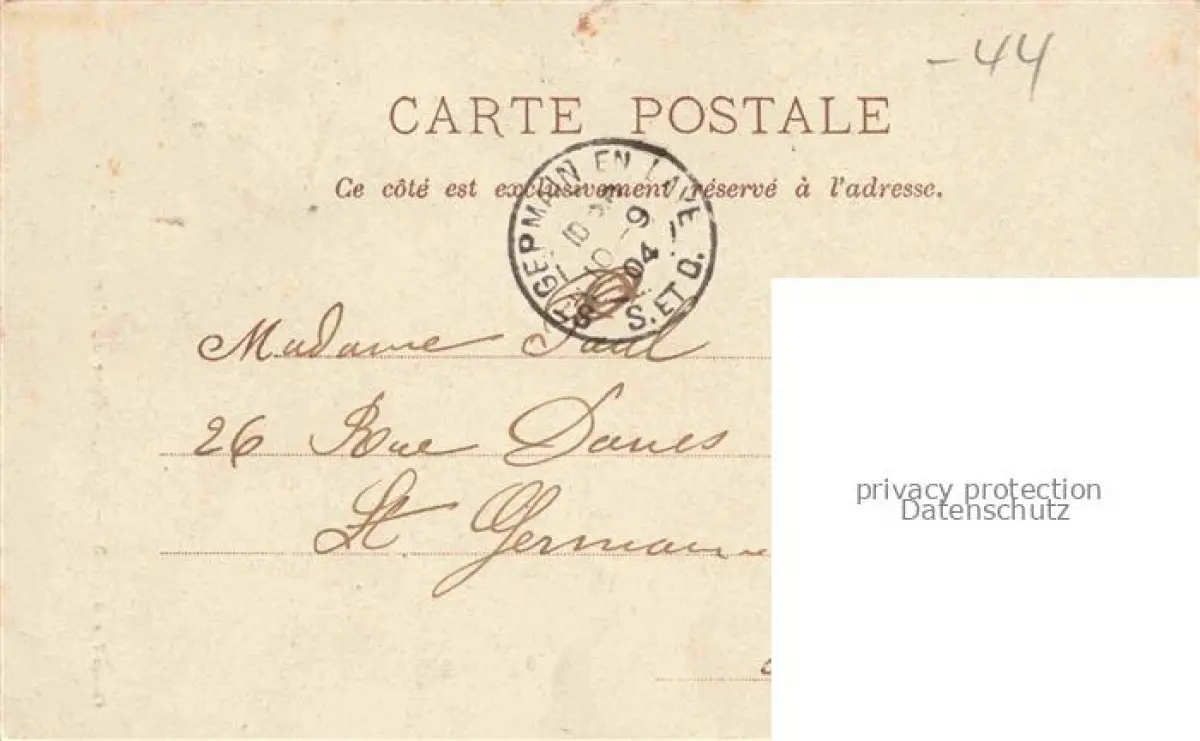 -44
CARTE POSTALE
Ce côté est exclusivement réservé à l'adresse.
ST GERMAIN EN LAYE
10 -9
04
S. ET O.
Madame Paul
26 Rue Danes
St. Germain
privacy protection
Datenschutz